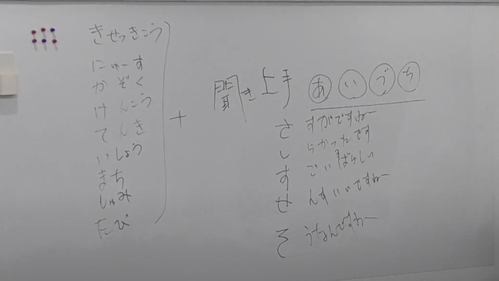 きせっきこう
にゅーす
かぞく
けんこう
てんき
いしょう
まち
しゅみ
たび
+
聞き上手 あいづち
さ すがですねー
し らかったです
す ごい すばらしい
せ んすいいですねー
そ うなんですねー